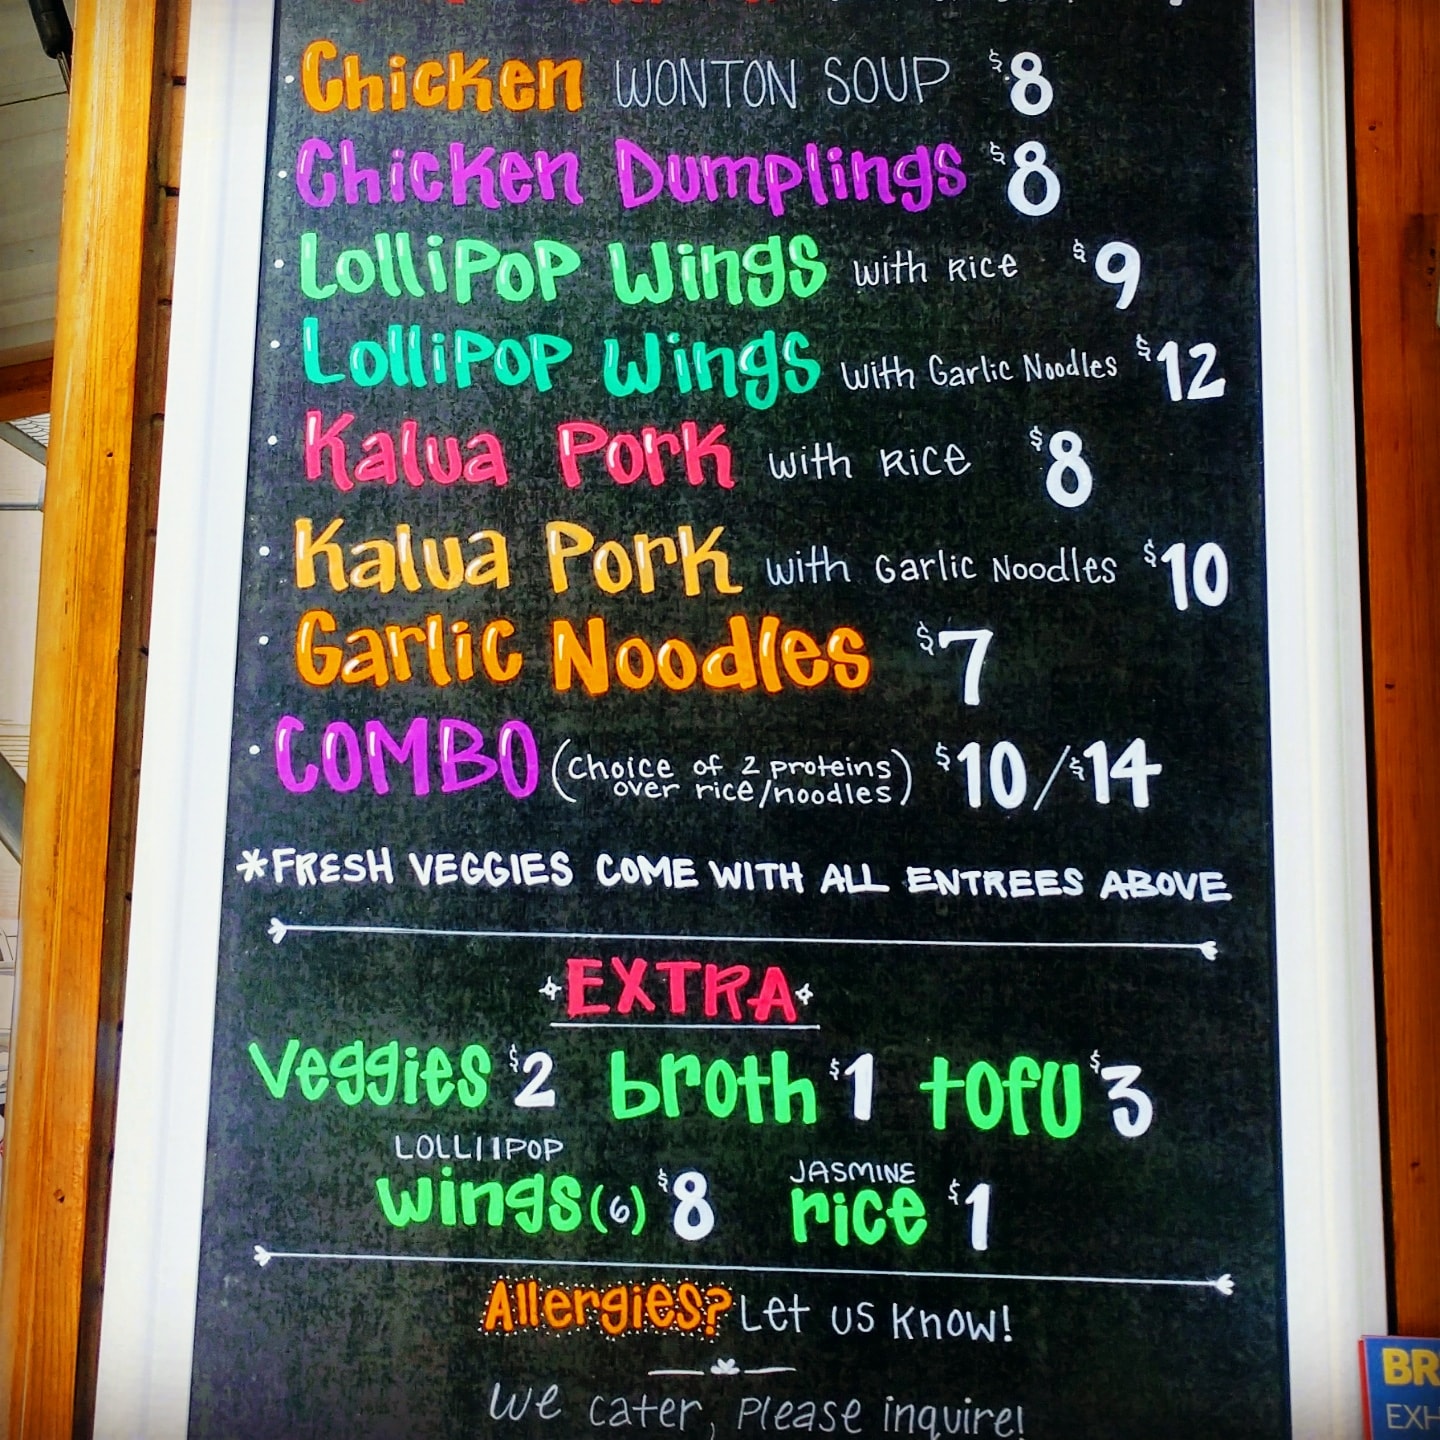 • Chicken WONTON SOUP $8
• Chicken Dumplings $8
• LolliPoP Wings with Rice $9
• LolliPoP Wings with Garlic Noodles $12
• Kalua Pork with Rice $8
• Kalua Pork with Garlic Noodles $10
• Garlic Noodles $7
• COMBO (choice of 2 proteins $10/$14
over rice/noodles)
*FRESH VEGGIES COME WITH ALL ENTREES ABOVE
EXTRA
Veggies $2 broth $1 tofu $3
LOLLIIPOP JASMINE
wings (6) $8 rice $1
Allergies? Let us know!
We cater, Please inquire!
BR
EXH